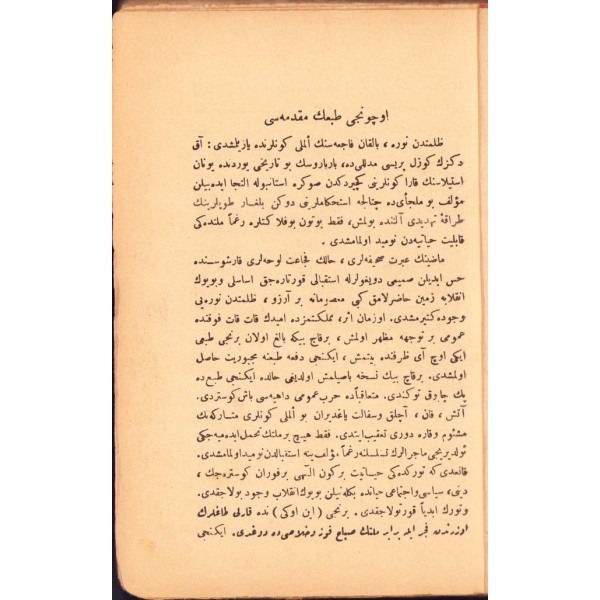 اوچونجی طبعك مقدمه‌سی
ظلمتدن نوره ، بالقان فاجعه‌سنك ألملی كونلرنده یازیلمشدی : آق
دكزك كوزل پریسی مدللی‌ده، بارباروسك بو تاریخی یوردنده یونان
استیلاسنك قارا كونلرینی كچیردكدن صوكره استانبوله التجا ایده‌بیلن
مؤلف بو ملجأی‌ده چتالجه استحكاملرینی دوكن بلغار طوپلرینك
طراقۀ تهدیدی آلتنده بولمش، فقط بوتون بوفلاكتلره رغماً ملتده‌كی
قابلیت حیاتیه‌دن نومید اولمامشدی .
ماضینك عبرت صحیفه‌لری ، حالك فجاعت لوحه‌لری قارشوسنده
حس ایدیلن صمیمی دویغولرله استقبالی قورتاره‌جق اساسلی وبویوك
انقلابه زمین حاضرلامق كبی معصومانه بر آرزو ، ظلمتدن نوره‌یی
وجوده كتیرمشدی. اوزمان اثر، مملكتمزده امیدك قات قات فوقنده
عمومی بر توجهه مظهر اولمش ، برقاچ بیكه بالغ اولان برنجی طبعی
ایكی اوچ آی ظرفنده بیتمش ، ایكنجی دفعه طبعنه مجبوریت حاصل
اولمشدی. برقاچ بیك نسخه باصیلمش اولدیغی حالده ایكنجی طبعی‌ده
پك چابوق توكندی. متعاقباً‌ده حرب عمومی داهیه‌سی باش كوستردی.
آتش ، قان ، آچلق وسفالت یاغدیران بو ألملی كونلری متاركه‌نك
مشئوم وقاره دوری تعقیب ایتدی. فقط هیچ بر ملتك تحمل ایده‌میه‌جكی
تولدیریجی ماجرالرك تسلسلنه رغماً ، مؤلف ینه استقبالدن نومید اولمامشدی.
قانعدی كه توركده‌كی حیاتیت بركون الٓهی برفوران كوستره‌جك ،
دینی، سیاسی واجتماعی حیاتده بكله‌نیلن بویوك انقلاب وجود بولاجقدی
وتورك ابدیاً قورتولاجقدی . برنجی ( این اوكی ) نده قارلی طاغلرك
اوزرندن فجر ایله برابر ملتك صباح فوز وخلاصی‌ده دوغدی. ایكنجی